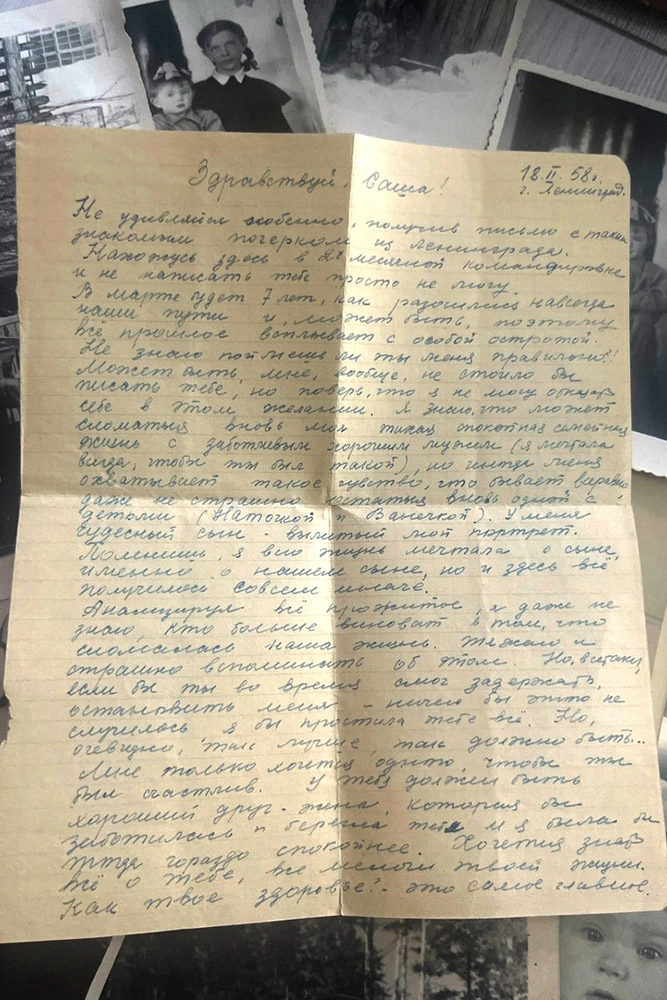 Здравствуй, Саша!
18.II.58г.
г. Ленинград.
Не удивляйся особенно, получив письмо с таким
знакомым почерком из Ленинграда.
Нахожусь здесь в 2х месячной командировке
и не написать тебе просто не могу.
В марте будет 7 лет, как разошлись навсегда
наши пути и, может быть, поэтому
всё прошлое всплывает с особой остротой.
Не знаю поймёшь ли ты меня правильно?!
Может быть, мне, вообще, не стоило бы
писать тебе, но поверь, что я не могу отказать
себе в этом желании. Я знаю, что может
сломаться вновь моя тихая спокойная семейная
жизнь с заботливым хорошим мужем (я мечтала
всегда, чтобы ты был такой), но иногда меня
охватывает такое чувство, что бывает
даже не страшно остаться вновь одной с
детьми (Наточкой и Ванечкой). У меня
чудесный сын - вылитый мой портрет.
Помнишь, я всю жизнь мечтала о сыне,
именно о нашем сыне, но и здесь всё
получилось совсем иначе.
Анализируя всё прожитое, я даже не
знаю, кто больше виноват в том, что
сломалась наша жизнь. Тяжело и
страшно вспоминать об этом. Но, всётаки,
если бы ты во время смог задержать,
остановить меня - ничего бы этого не
случилось, я бы простила тебе всё. Но,
очевидно, так лучше, так должно быть...
Мне только хочется одного, чтобы ты
был счастлив. У тебя должен быть
хороший друг - жена, которая бы
заботилась и берегла тебя и я была бы
тогда гораздо спокойнее. Хочется знать
всё о тебе, все мелочи твоей жизни.
Как твое здоровье? - это самое главное.